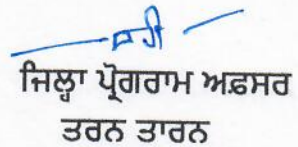 ਸਹੀ
ਜਿਲ੍ਹਾ ਪ੍ਰੋਗਰਾਮ ਅਫ਼ਸਰ
ਤਰਨ ਤਾਰਨ